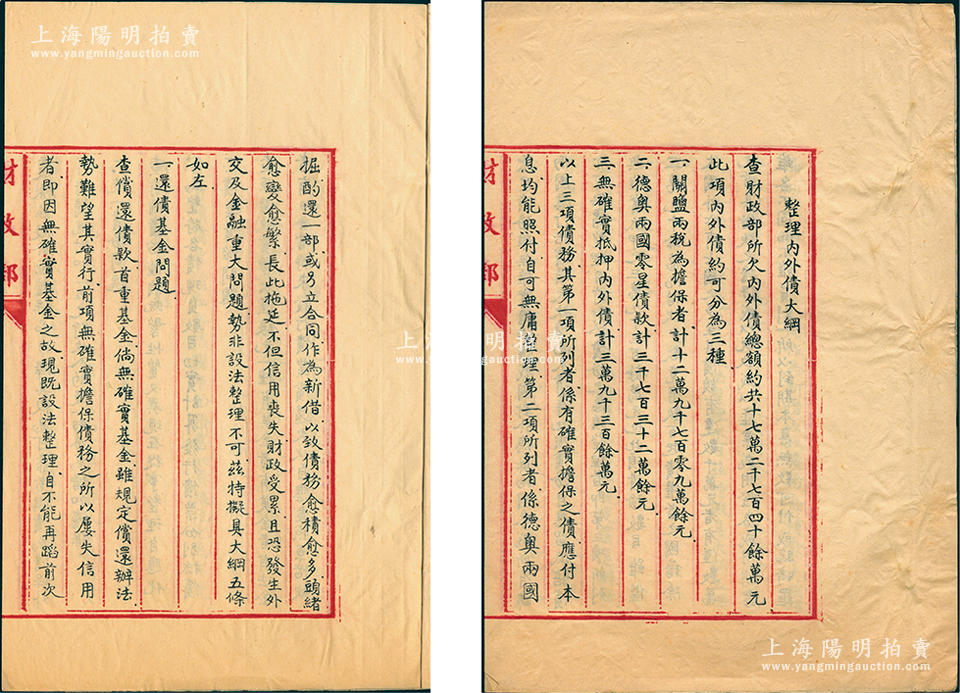 整理內外債大綱
查財政部所欠內外債總額約共十七萬二千七百四十餘萬元
此項內外債約可分為三種
一關鹽兩稅為擔保者計十二萬九千七百零九萬餘元
二德奧兩國零星債款計三千七百三十二萬餘元
三無確實抵押內外債計三萬九千三百餘萬元
以上三項債務其第一項所列者係有確實擔保之債應付本
息均能照付自可無庸整理第二項所列者係德奧兩國
財政部
掘酌還一部或另立合同作為新借以致債務愈積愈多頭緒
愈變愈繁長此拖延不但信用喪失財政受累且恐發生外
交及金融重大問題勢非設法整理不可茲特擬具大綱五條
如左
一還債基金問題
查償還債款首重基金倘無確實基金雖規定償還辦法
勢難望其實行前項無確實擔保債務之所以屢失信用
者即因無確實基金之故現既設法整理自不能再蹈前次
財政部
上海陽明拍賣
www.yangmingauction.com
上海陽明拍賣
www.yangmingauction.com
上海陽明拍賣
www.yangmingauction.com